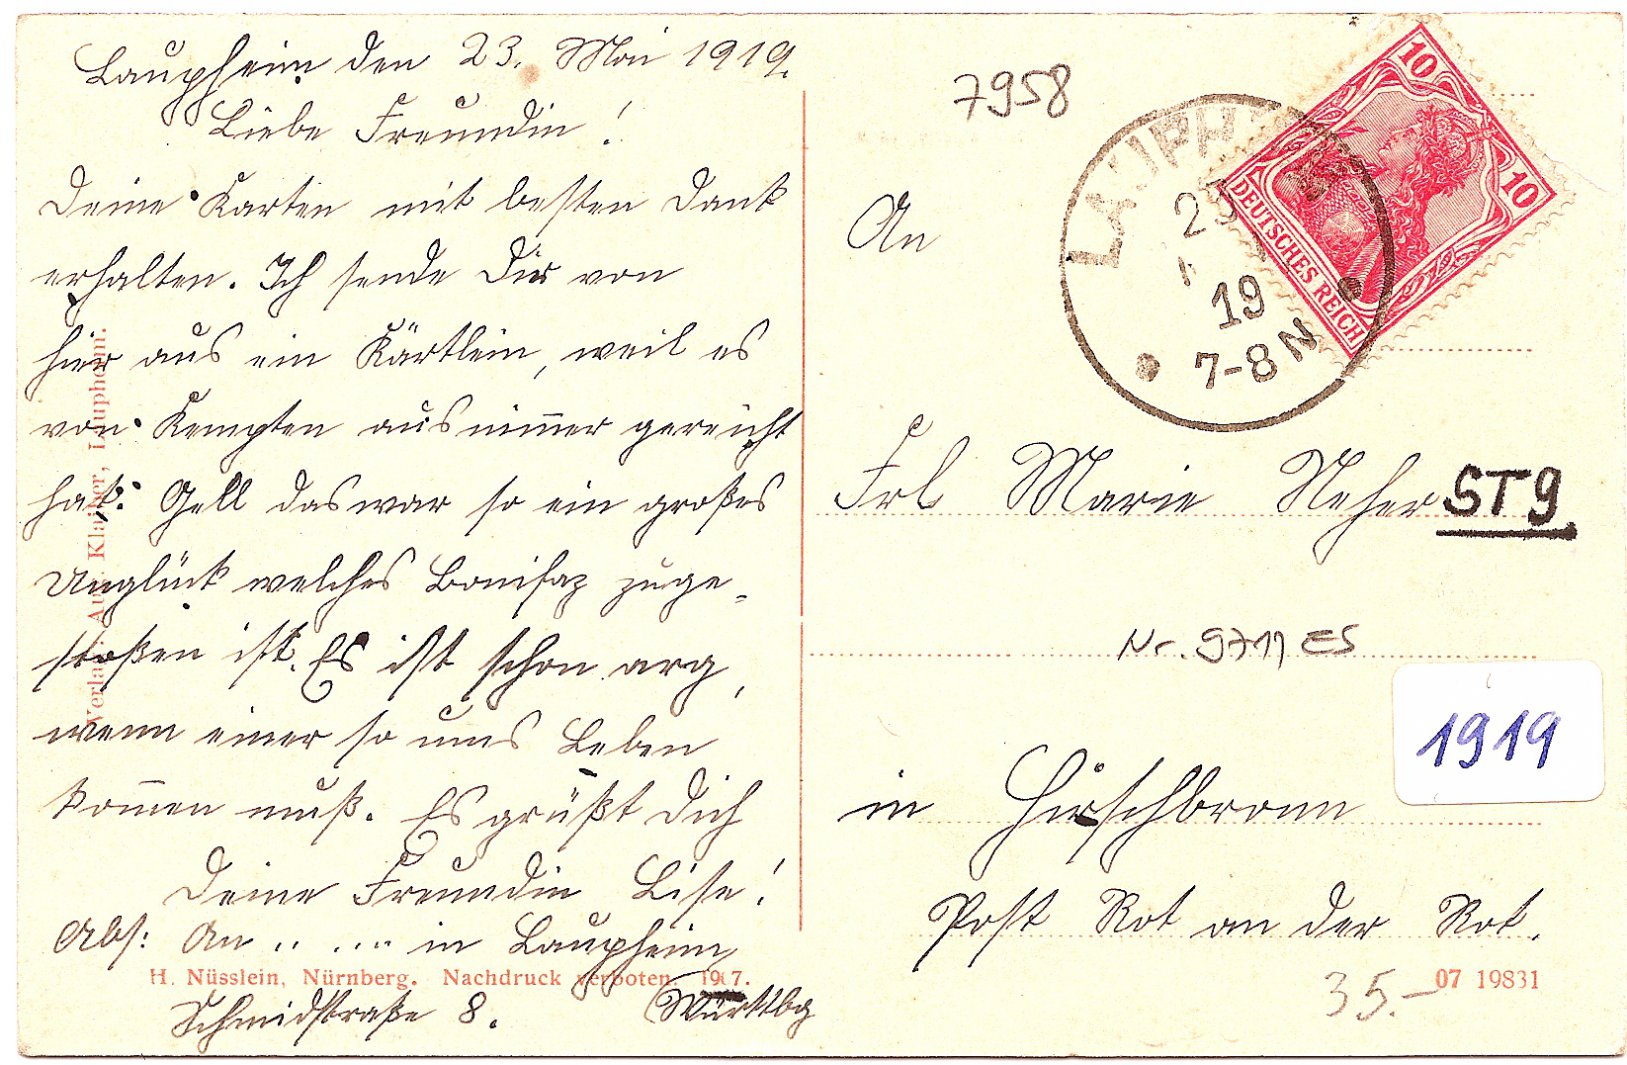 Laupheim den 23. Mai 1919.
Liebe Freundin!
Deine Karten mit besten Dank
erhalten. Ich sende Dir von
hier aus ein Kärtlein, weil es
von Kempten aus nimmer gereicht
hat. Gell das war so ein großes
Unglück welches Bonifaz zuge-
stoßen ist. Es ist schon arg,
wenn einer so ums Leben
kom̅en muß. Es grüßt Dich
Deine Freundin Lise!
Abs: An in Laupheim
Schmidstraße 8. Württbg
H. Nüsslein, Nürnberg. Nachdruck verboten. 1907.
Verlag: Aug. Klaiber, Laupheim.
7958
10
10
DEUTSCHES REICH
LAUPHEIM
23
19
7-8 N
An
Frl Marie Neher
ST9
Nr. 9711 ES
1919
in Hirschbronn
Post Rot an der Rot.
07 19831
35.-